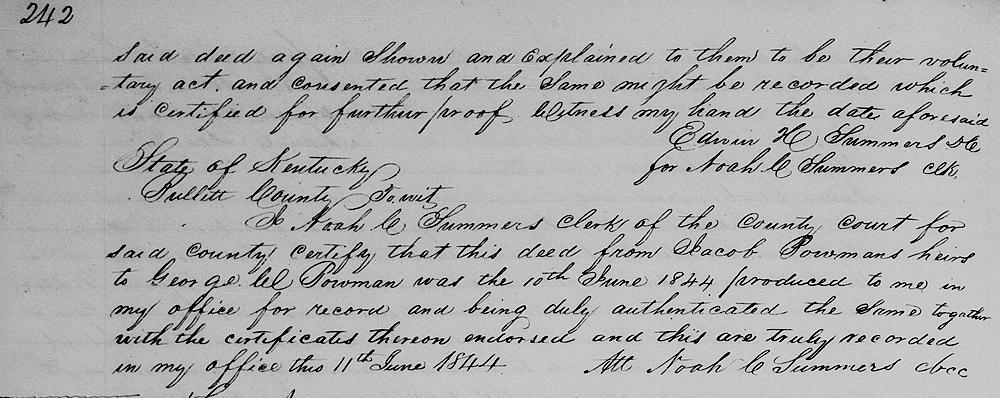 242
said deed again Shown and Explained to them to be their volun=
=tary act. and consented that the Same might be recorded which
is certified for furthur proof Witness my hand the date aforesaid
Edwin H Summers DC
for Noah C Summers clk.
State of Kentucky
Bullitt County Towit
I Noah C Summers clerk of the county court for
said county certify that this deed from Jacob Bowmans heirs
to George W Bowman was the 10th June 1844 produced to me in
my office for record and being duly authenticated the Same togather
with the certificates thereon endorsed and this are truly recorded
in my office this 11th June 1844 Att Noah C Summers cbcc